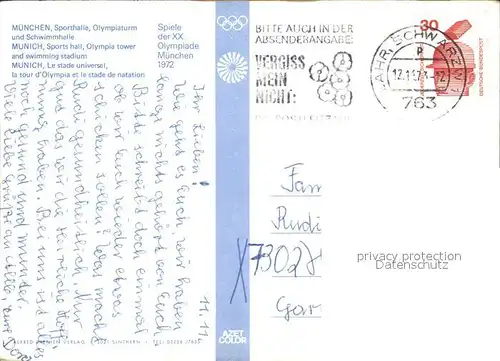 MÜNCHEN, Sporthalle, Olympiaturm
und Schwimmhalle
MUNICH, Sports hall, Olympia tower
and swimming stadium
MUNICH, Le stade universel,
la tour d'Olympia et le stade de natation
Spiele
der XX.
Olympiade
München
1972
BITTE AUCH IN DER
ABSENDERANGABE:
VERGISS
MEIN
NICHT:
LAHR, SCHWARZW
763
30
DEUTSCHE BUNDESPOST
11.11
Ihr Lieben!
Wie geht es Euch, wir haben
lange nichts gehört von Euch
Bitte schreibt doch einmal
ob wir Euch wieder etwas
schicken sollen? Was macht
Rudi gesundheitlich. Nur
gut das wir die
immer haben. Bei uns ist alles
noch gesund und munter.
Viele liebe Grüße an alle, eure
Fam
Rudi
X7302
Gar
privacy protection
Datenschutz
AZET
COLOR